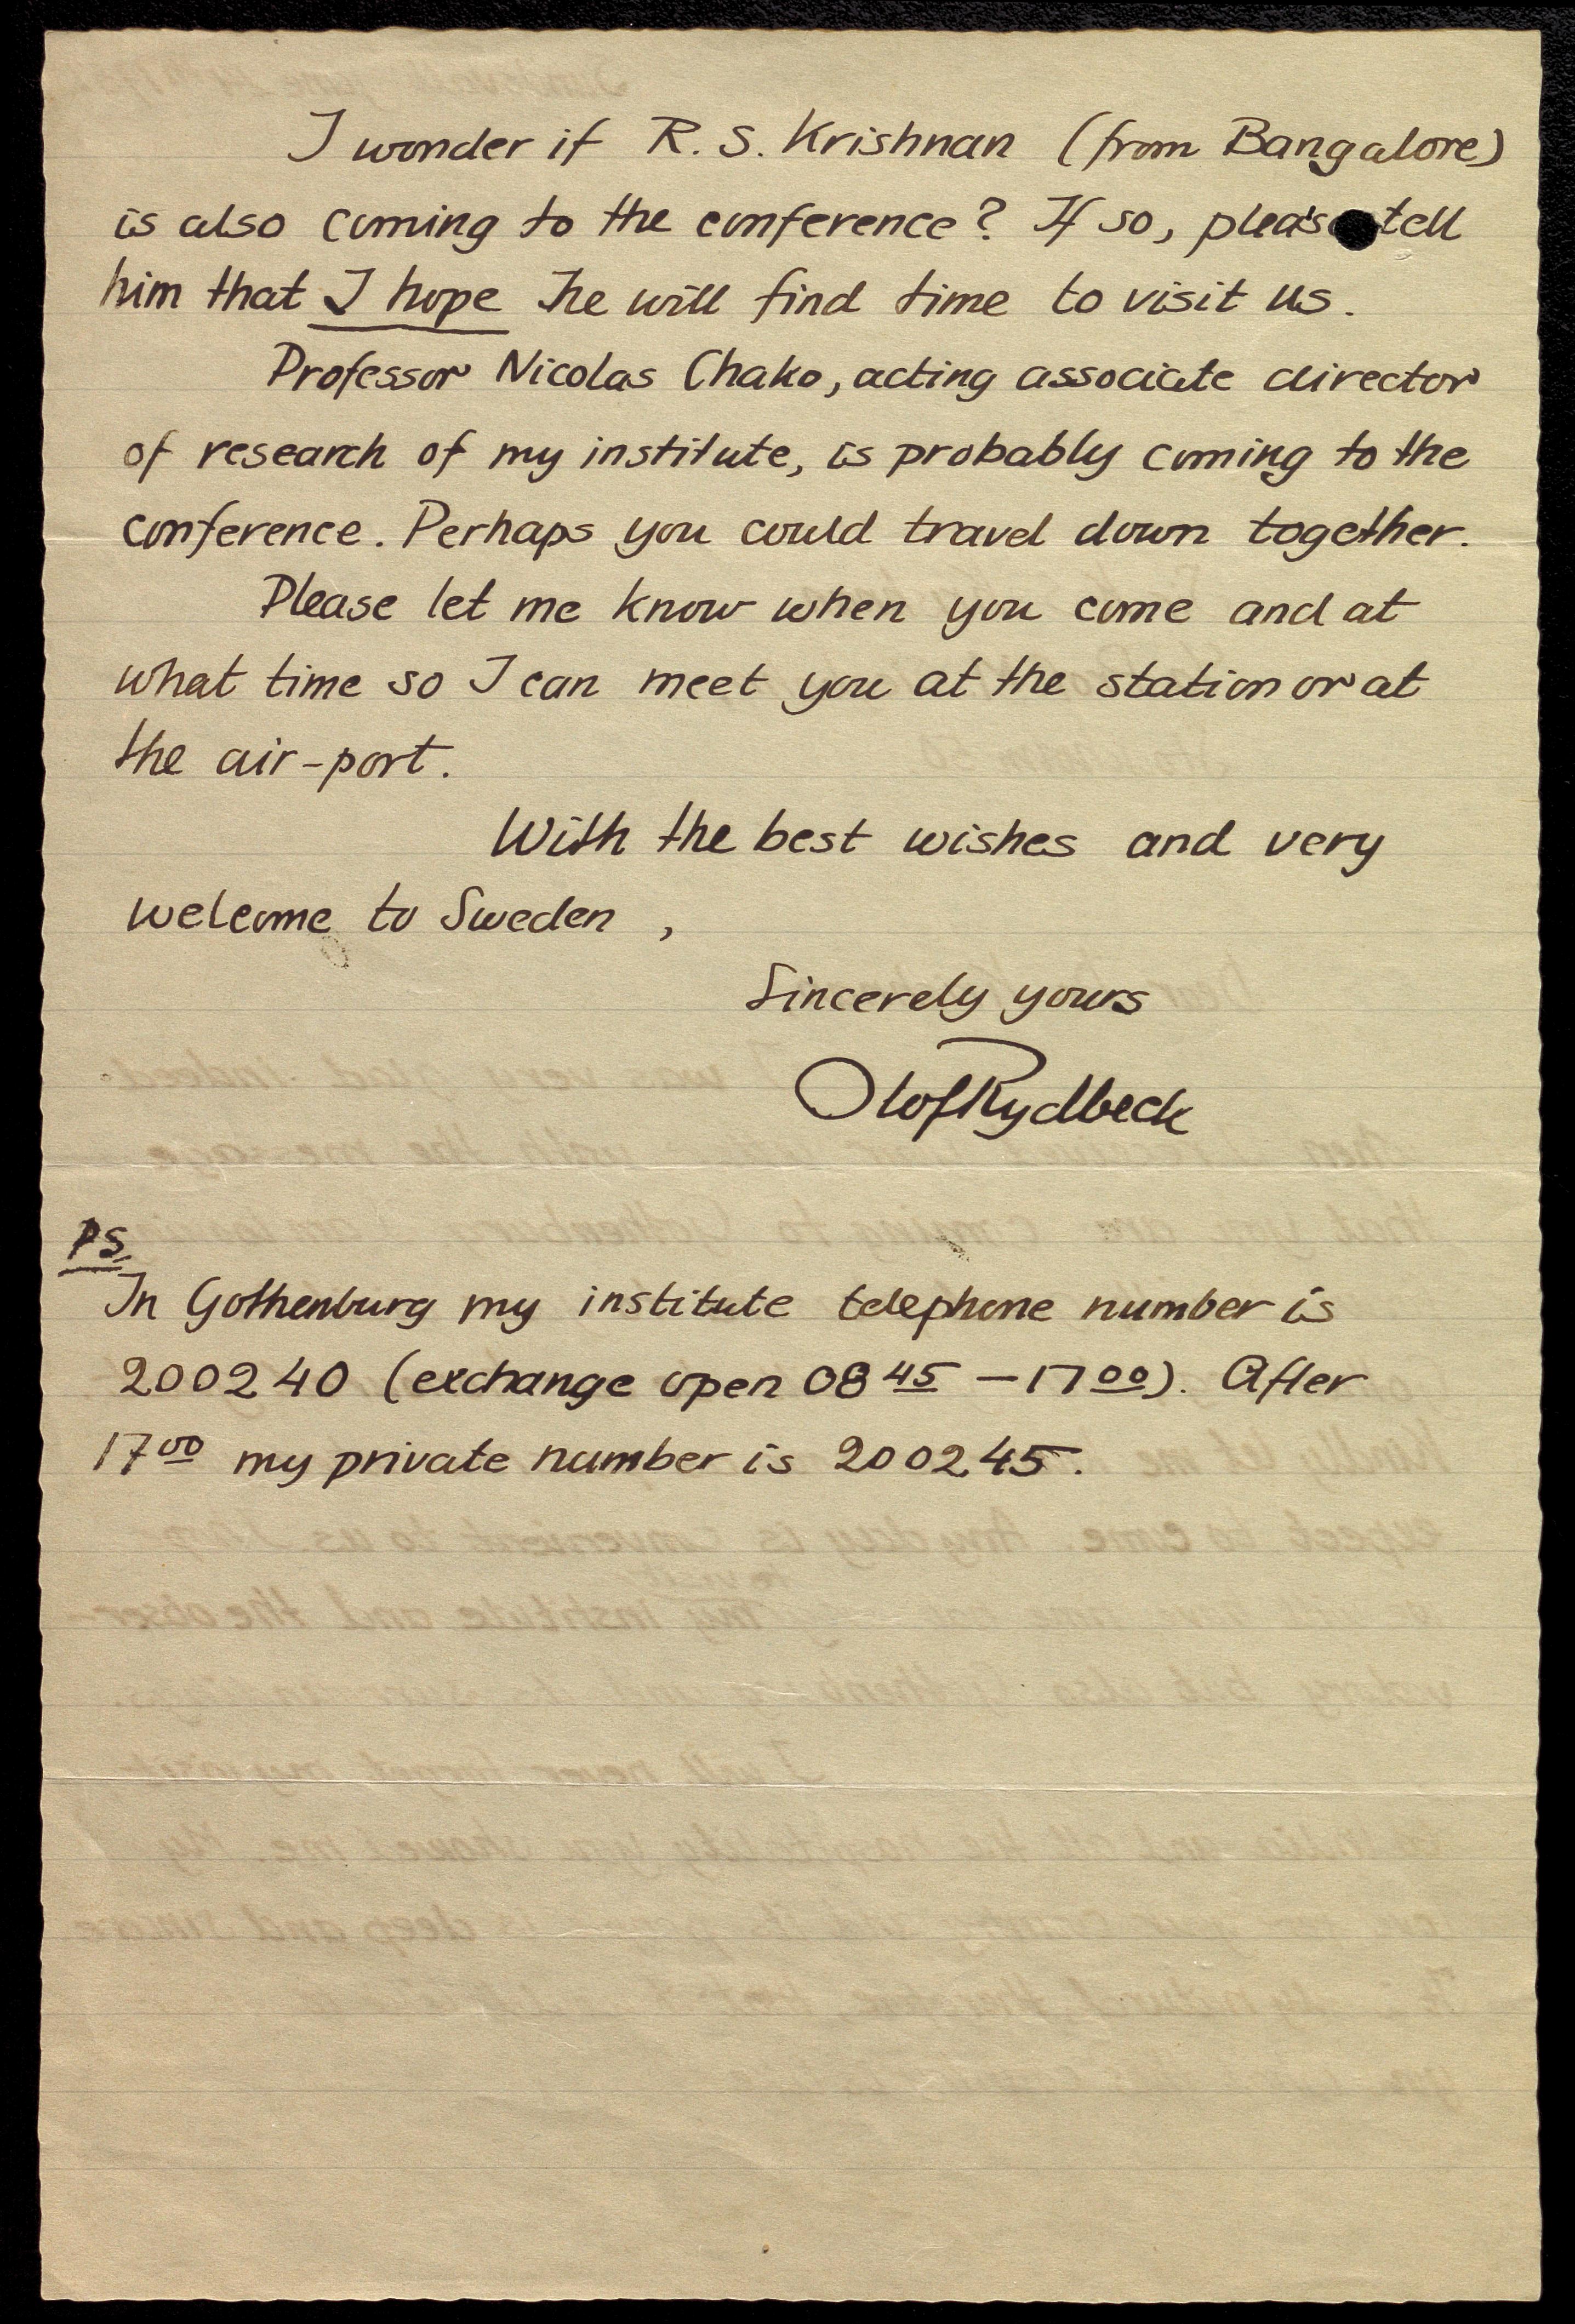 I wonder if R. S. Krishnan (from Bangalore)
is also coming to the conference? If so, please tell
him that I hope he will find time to visit us.
Professor Nicolas Chako, acting associate director
of research of my institute, is probably coming to the
conference. Perhaps you could travel down together.
Please let me know when you come and at
what time so I can meet you at the station or at
the air-port.
With the best wishes and very
welcome to Sweden ,
Sincerely yours
Olof Rydbeck
PS.
In Gothenburg my institute telephone number is
200240 (exchange open 08 45 – 17 00). After
17 00 my private number is 200245.